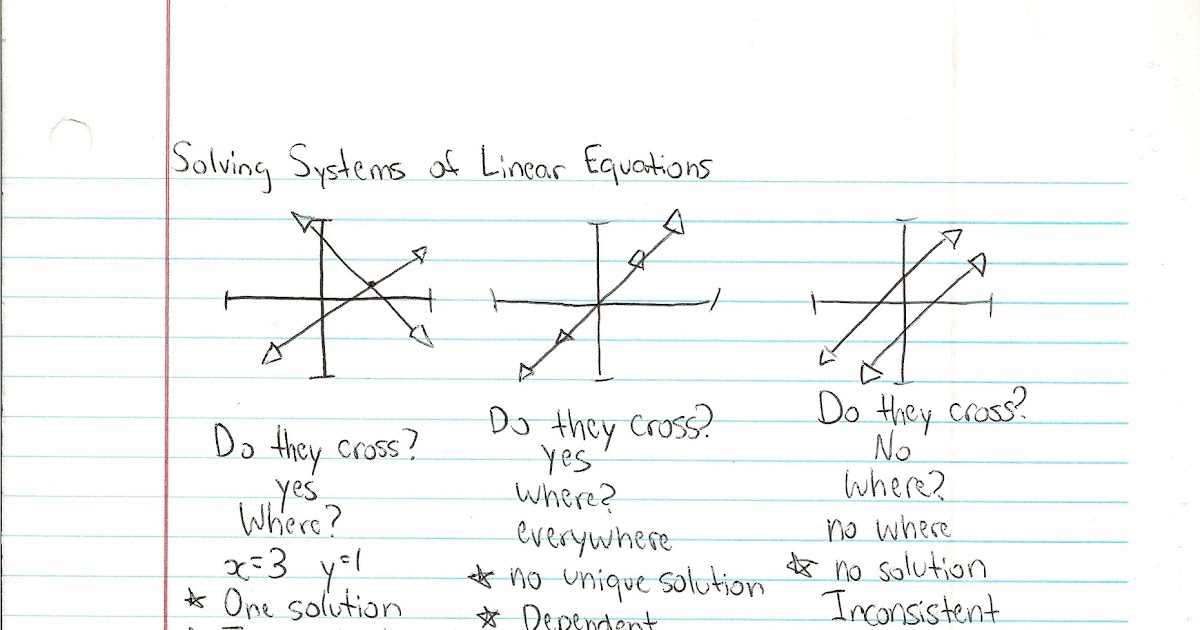 Solving Systems of Linear Equations
Do they cross?
yes
Where?
x=3 y=1
* One solution
Do they cross?
yes
Where?
everywhere
* no unique solution
* Dependent
Do they cross?
No
Where?
no where
* no solution
Inconsistent